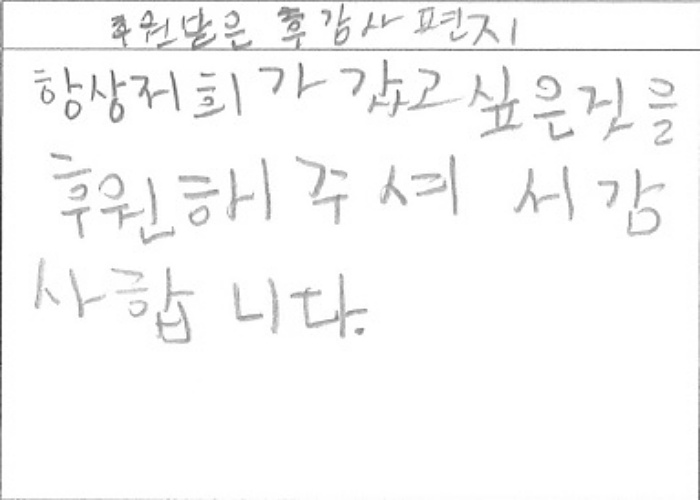 후원받은 후 감사 편지
항상저희가 갑고싶은것을
후원해 주셔 서 감
사합 니다.